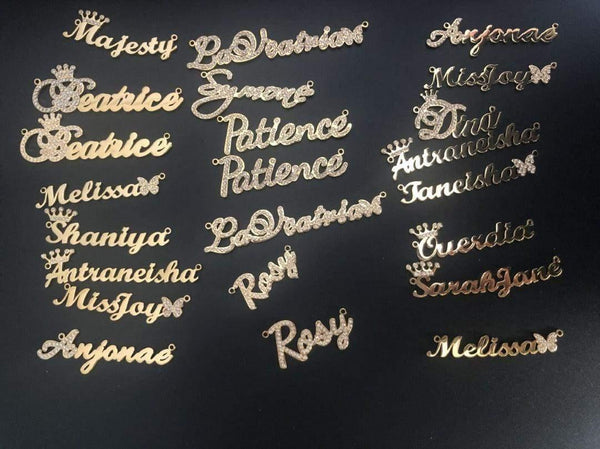 Majesty
Beatrice
Beatrice
Melissa
Shaniya
Antraneisha
MissJoy
Anjonae
LaVratrian
Symone
Patience
Patience
LaVratrian
Rosy
Rosy
Anjonae
MissJoy
Dina
Antraneisha
Taneisha
Querdia
SarahJane
Melissa